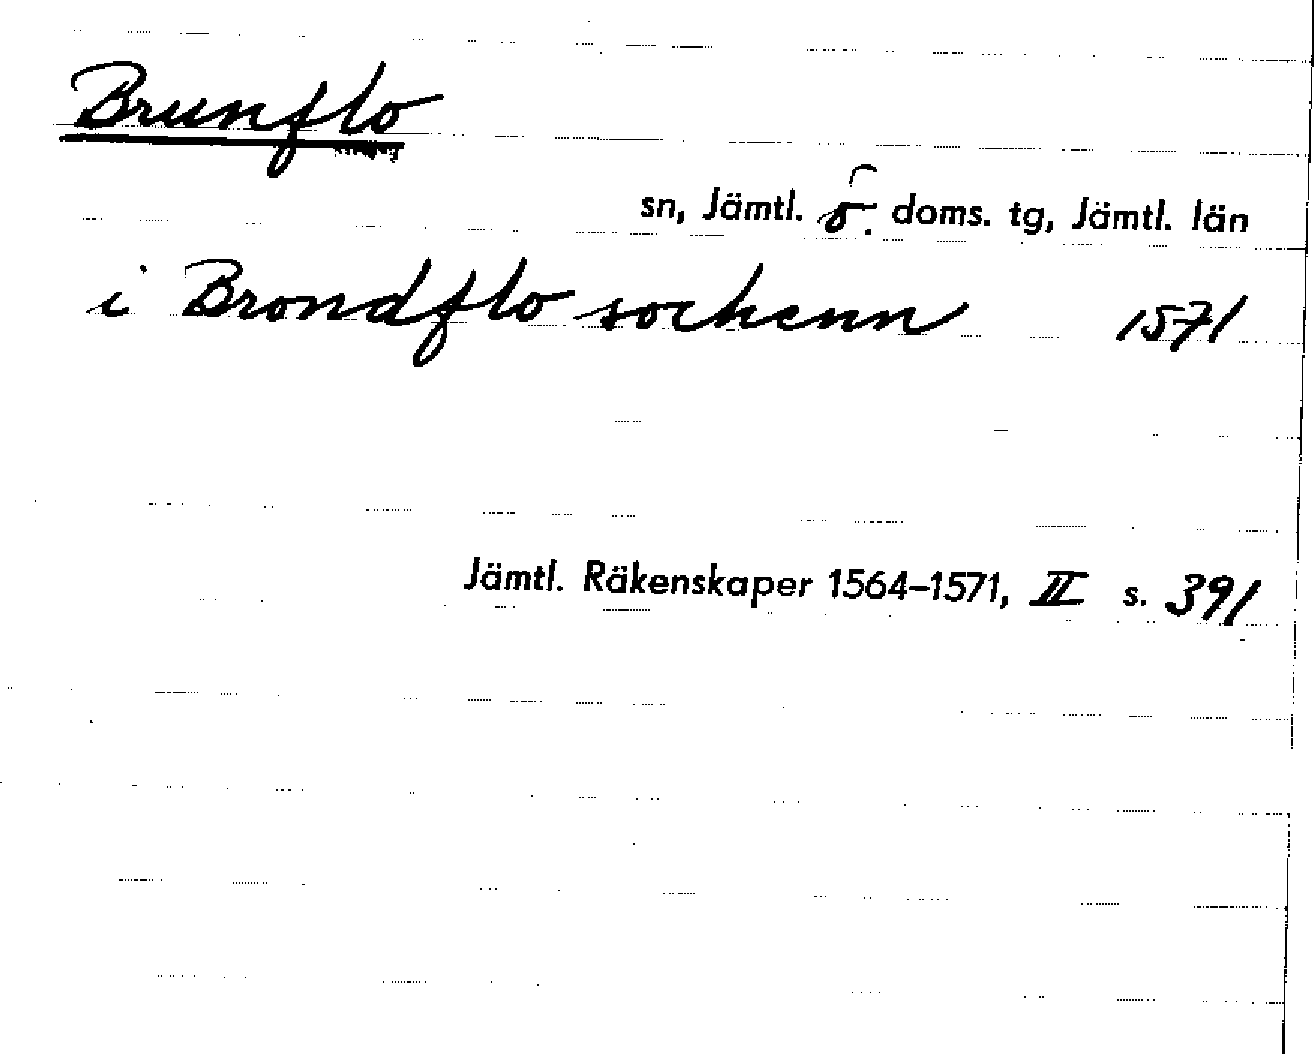 Brunflo
sn, Jämtl. ö. doms. tg, Jämtl. län
i Brondflo sochenn 1571
Jämtl. Räkenskaper 1564–1571, II s. 391